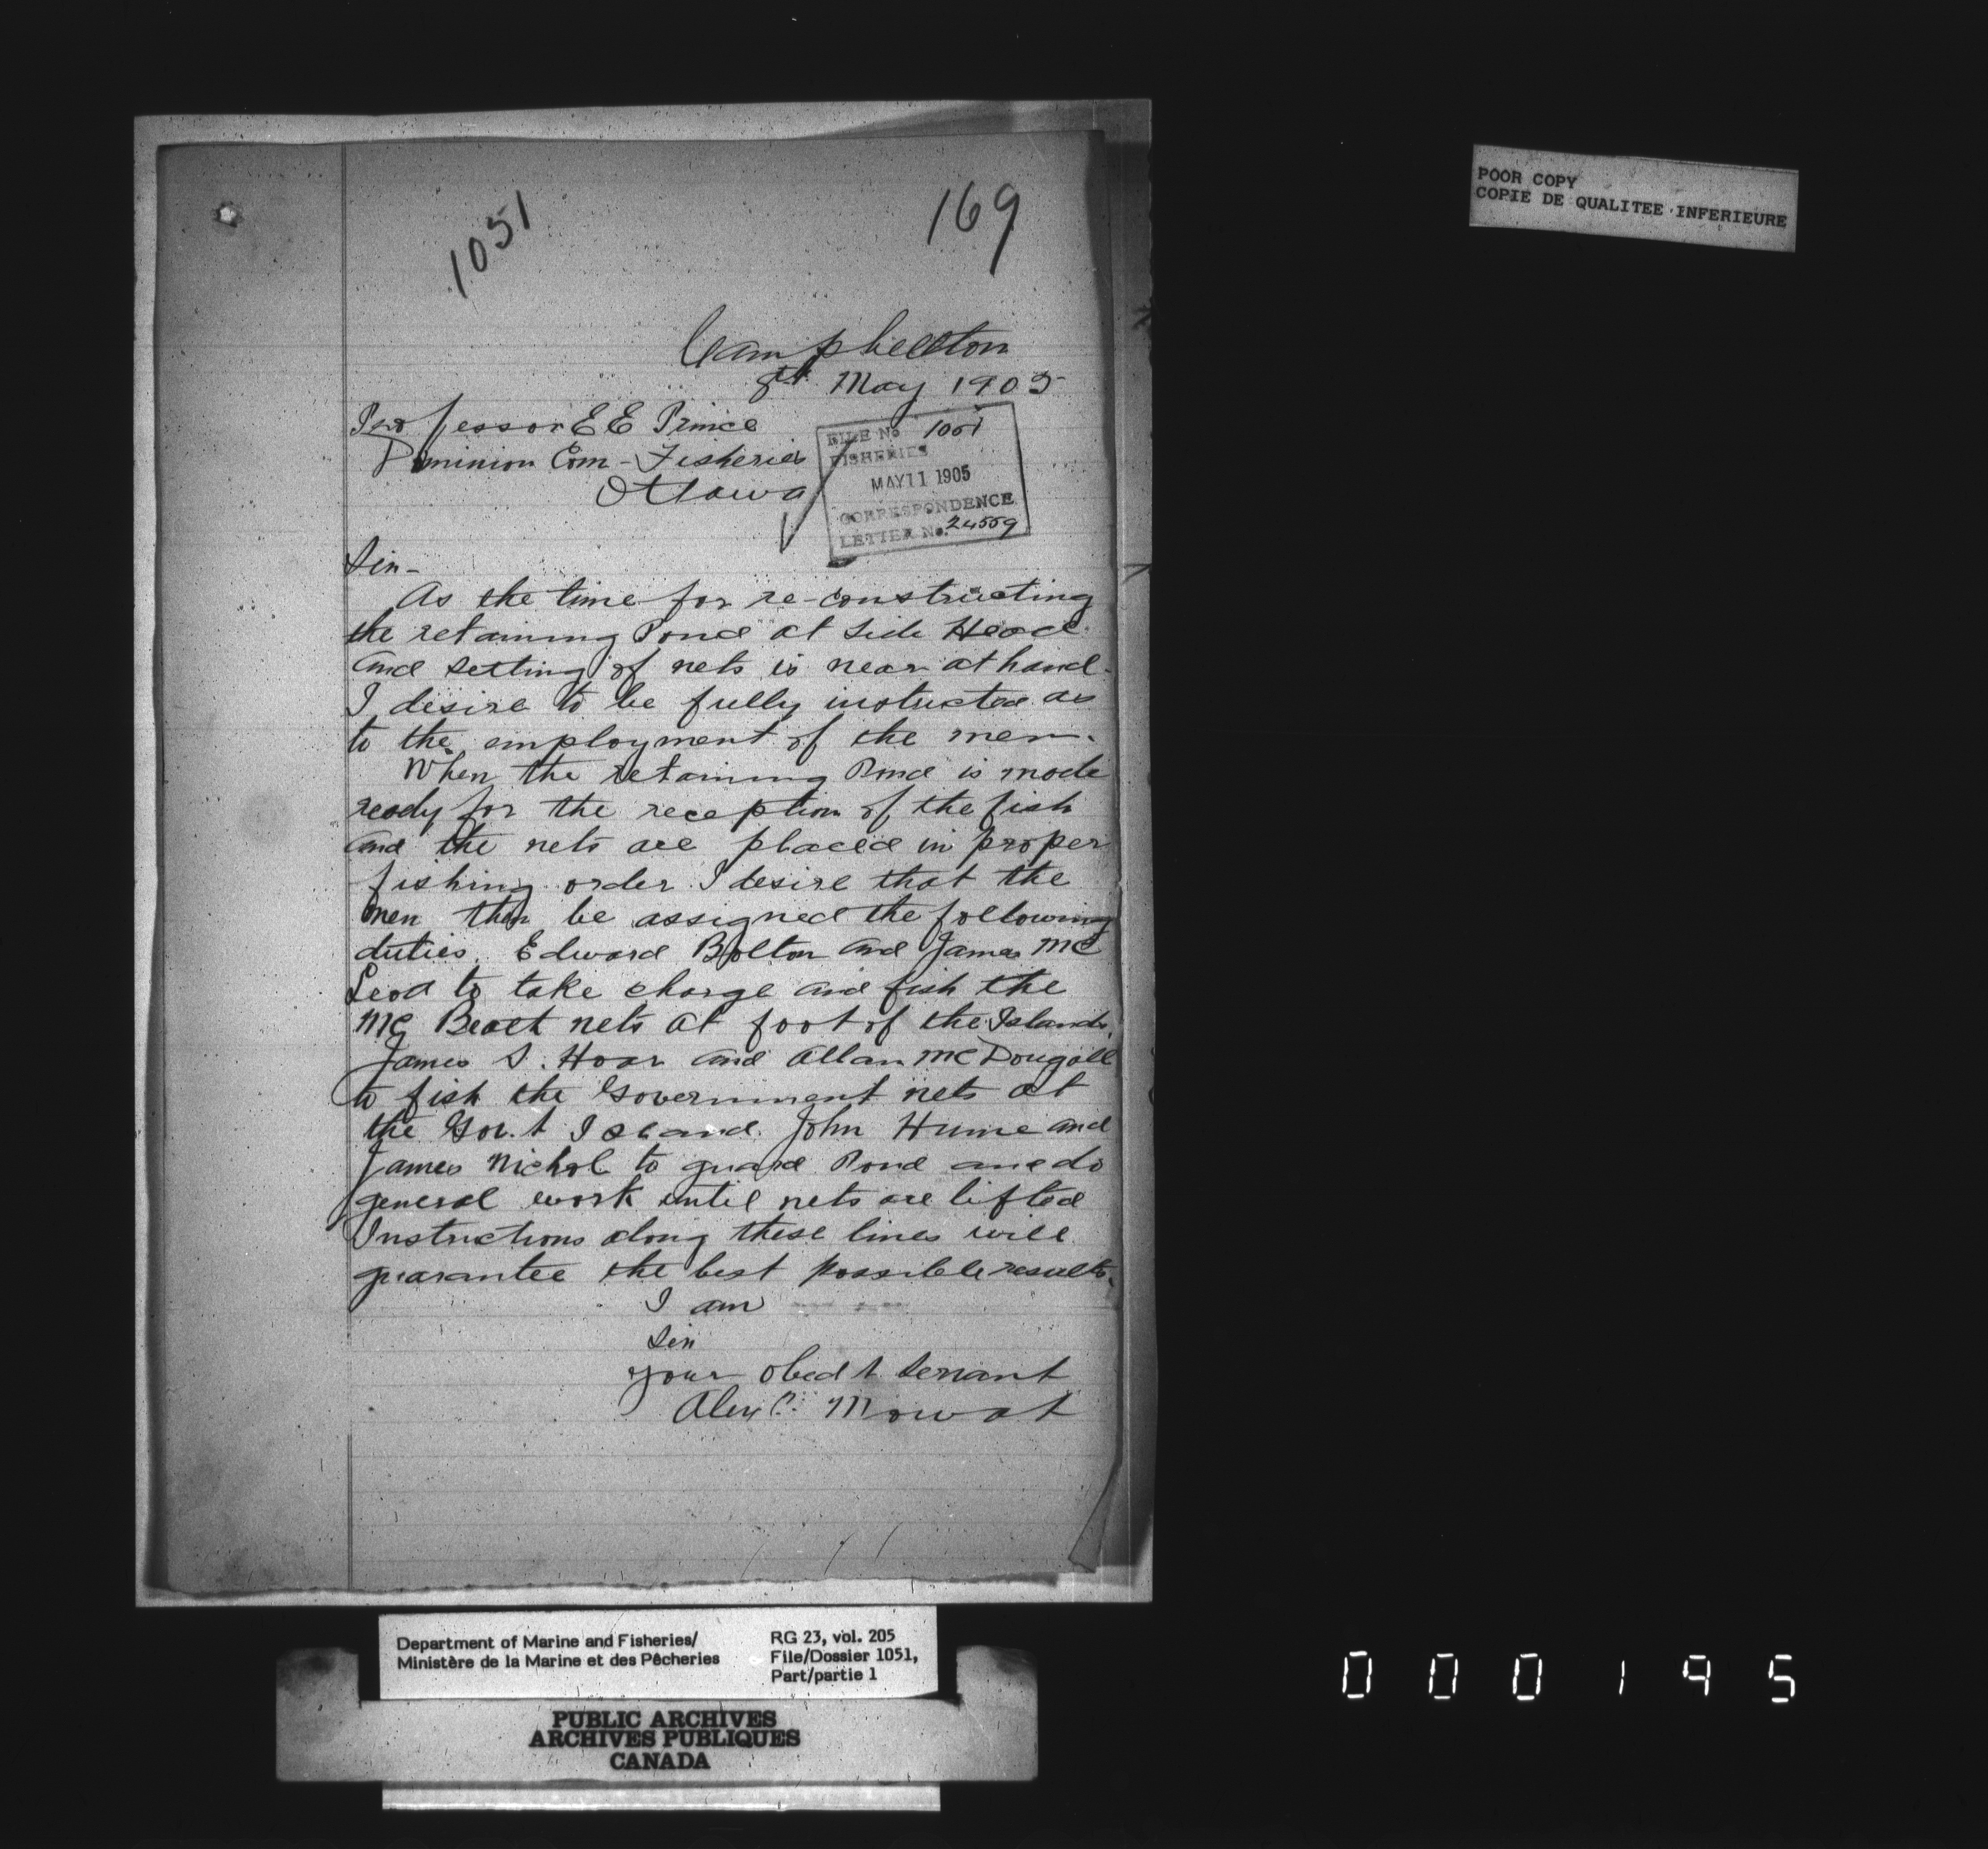 1051
169
Campbellton
8th May 1905
Professor E E Prince
Dominion Com - Fisheries
Ottawa
FILE No 1051
FISHERIES
MAY 11 1905
CORRESPONDENCE
LETTER No. 24559
Sir -
As the time for re-constructing
the retaining Pond at Tide Head
and setting of nets is near at hand
I desire to be fully instructed as
to the employment of the men.
When the retaining Pond is made
ready for the reception of the fish
and the nets are placed in proper
fishing order I desire that the
men then be assigned the following
duties. Edward Bolton and James Mc
Leod to take charge and fish the
Mc Beath nets at foot of the Islands.
James S. Hoar and Allan McDougall
to fish the Government nets at
the Gov.t Island. John Hume and
James Nichol to guard Pond and do
general work until nets are lifted
Instructions along these lines will
guarantee the best possible results.
I am
Sir
your obedt servant
Alex Mowat
POOR COPY
COPIE DE QUALITEE INFERIEURE
Department of Marine and Fisheries/
Ministère de la Marine et des Pêcheries
RG 23, vol. 205
File/Dossier 1051,
Part/partie 1
PUBLIC ARCHIVES
ARCHIVES PUBLIQUES
CANADA
000195